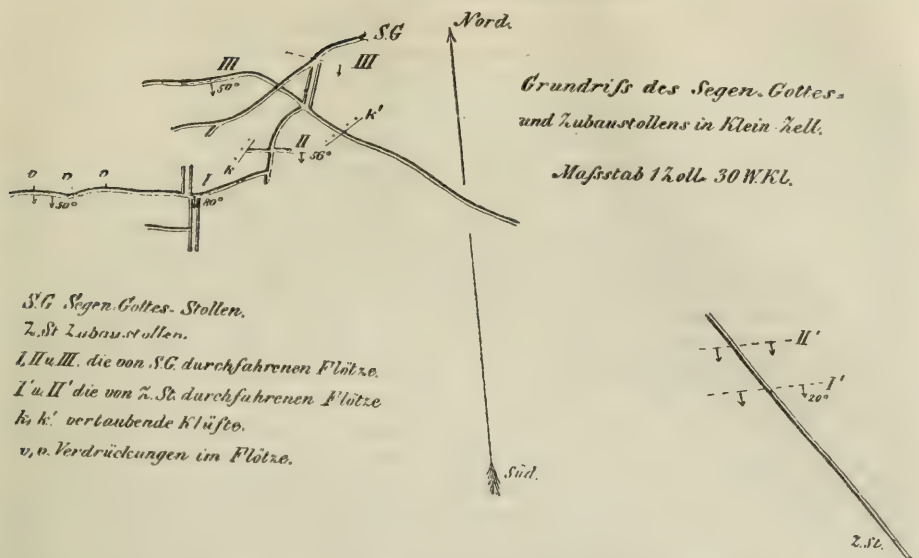 S.G
Nord.
III
III
50°
k'
II
56°
k
v v v
I
50°
80°
Grundriſs des Segen-Gottes-
und Zubaustollens in Klein-Zell.
Maſsstab 1 Zoll 30 W.Kl.
S.G Segen-Gottes-Stollen.
Z.St Zubaustollen.
I, II u. III. die von S.G. durchfahrenen Flötze.
I' u. II' die von Z. St. durchfahrenen Flötze
k, k'. vertaubende Klüfte.
v, v. Verdrückungen im Flötze.
Süd.
II'
I'
20°
Z.St.